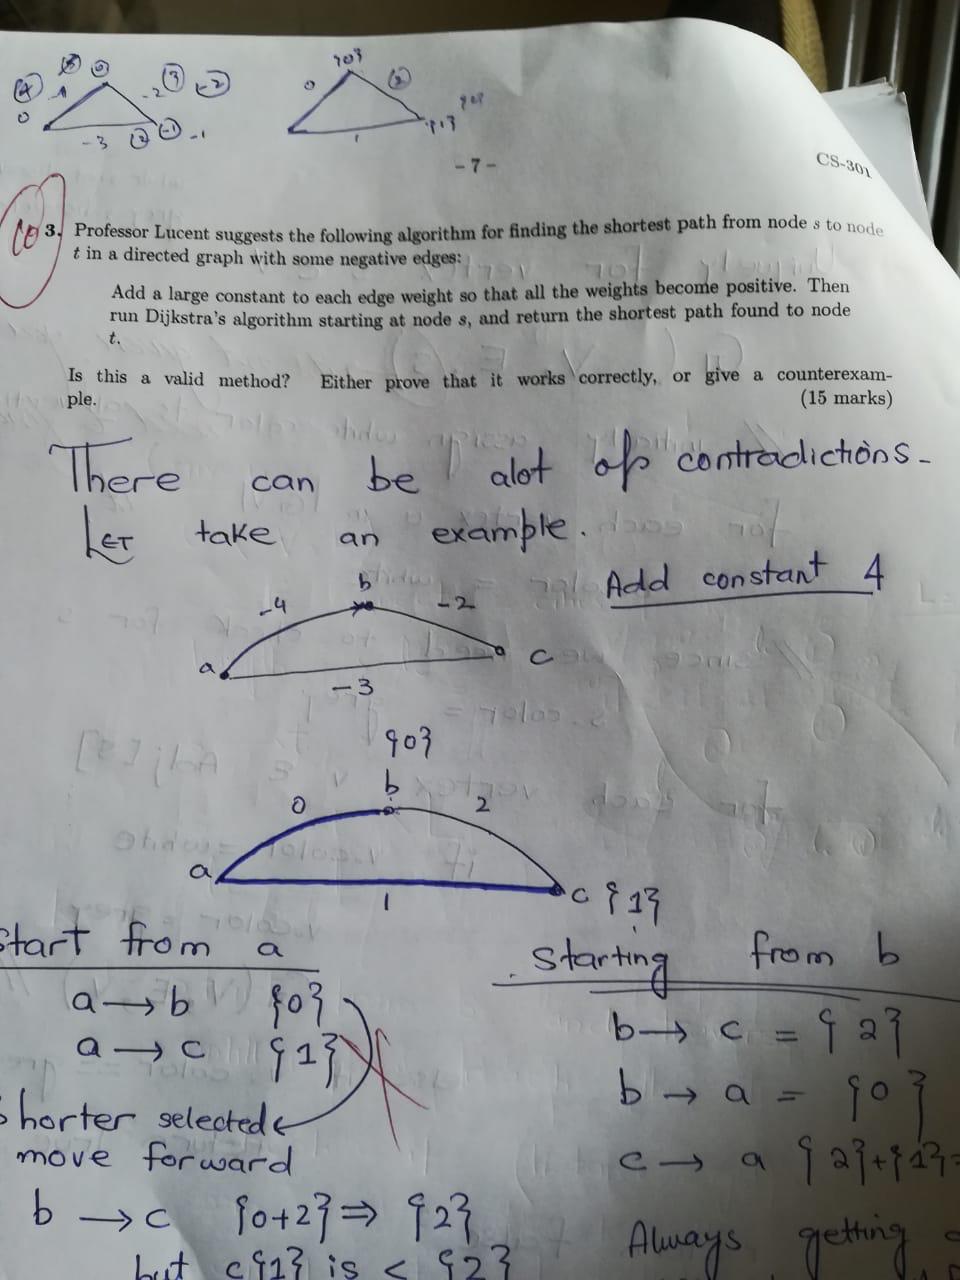 -2 3 -2
0
-3 2 -1 -1
{0}
0 2
{0}
{1}
1
- 7 -
CS-301
3. Professor Lucent suggests the following algorithm for finding the shortest path from node s to node
t in a directed graph with some negative edges:
Add a large constant to each edge weight so that all the weights become positive. Then
run Dijkstra's algorithm starting at node s, and return the shortest path found to node
t.
Is this a valid method? Either prove that it works correctly, or give a counterexam-
ple. (15 marks)
There can be alot of contradictions-
LET take an example.
Add constant 4
b
-4 -2
a c
-3
{0}
b
0 2
a c {1}
1
start from a
a → b {0}
a → c {1}
shorter selected
move forward
b → c {0+2} ⇒ {2}
but c{1} is < {2}
starting from b
b → c = {2}
b → a = {0}
c → a {2}+{1}=
Always getting